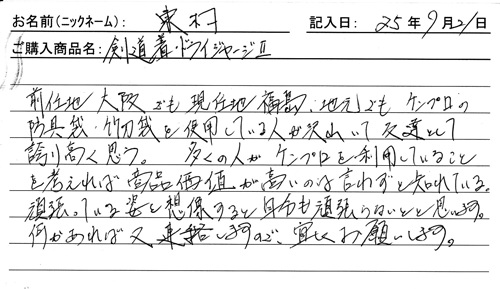 お名前(ニックネーム): 東村 記入日: 25年9月21日
ご購入商品名: 剣道着・ドライジャージⅡ
前任地 大阪でも現任地 福島、地元でもケンプロの
防具袋・竹刀袋を使用している人が沢山いて友達として
誇り高く思う。 多くの人がケンプロを利用していること
を考えれば商品価値が高いのは言わずと知れている。
頑張っている姿を想像すると自分も頑張らないとと思います。
何かあれば又、連絡しますので、宜しくお願いします。